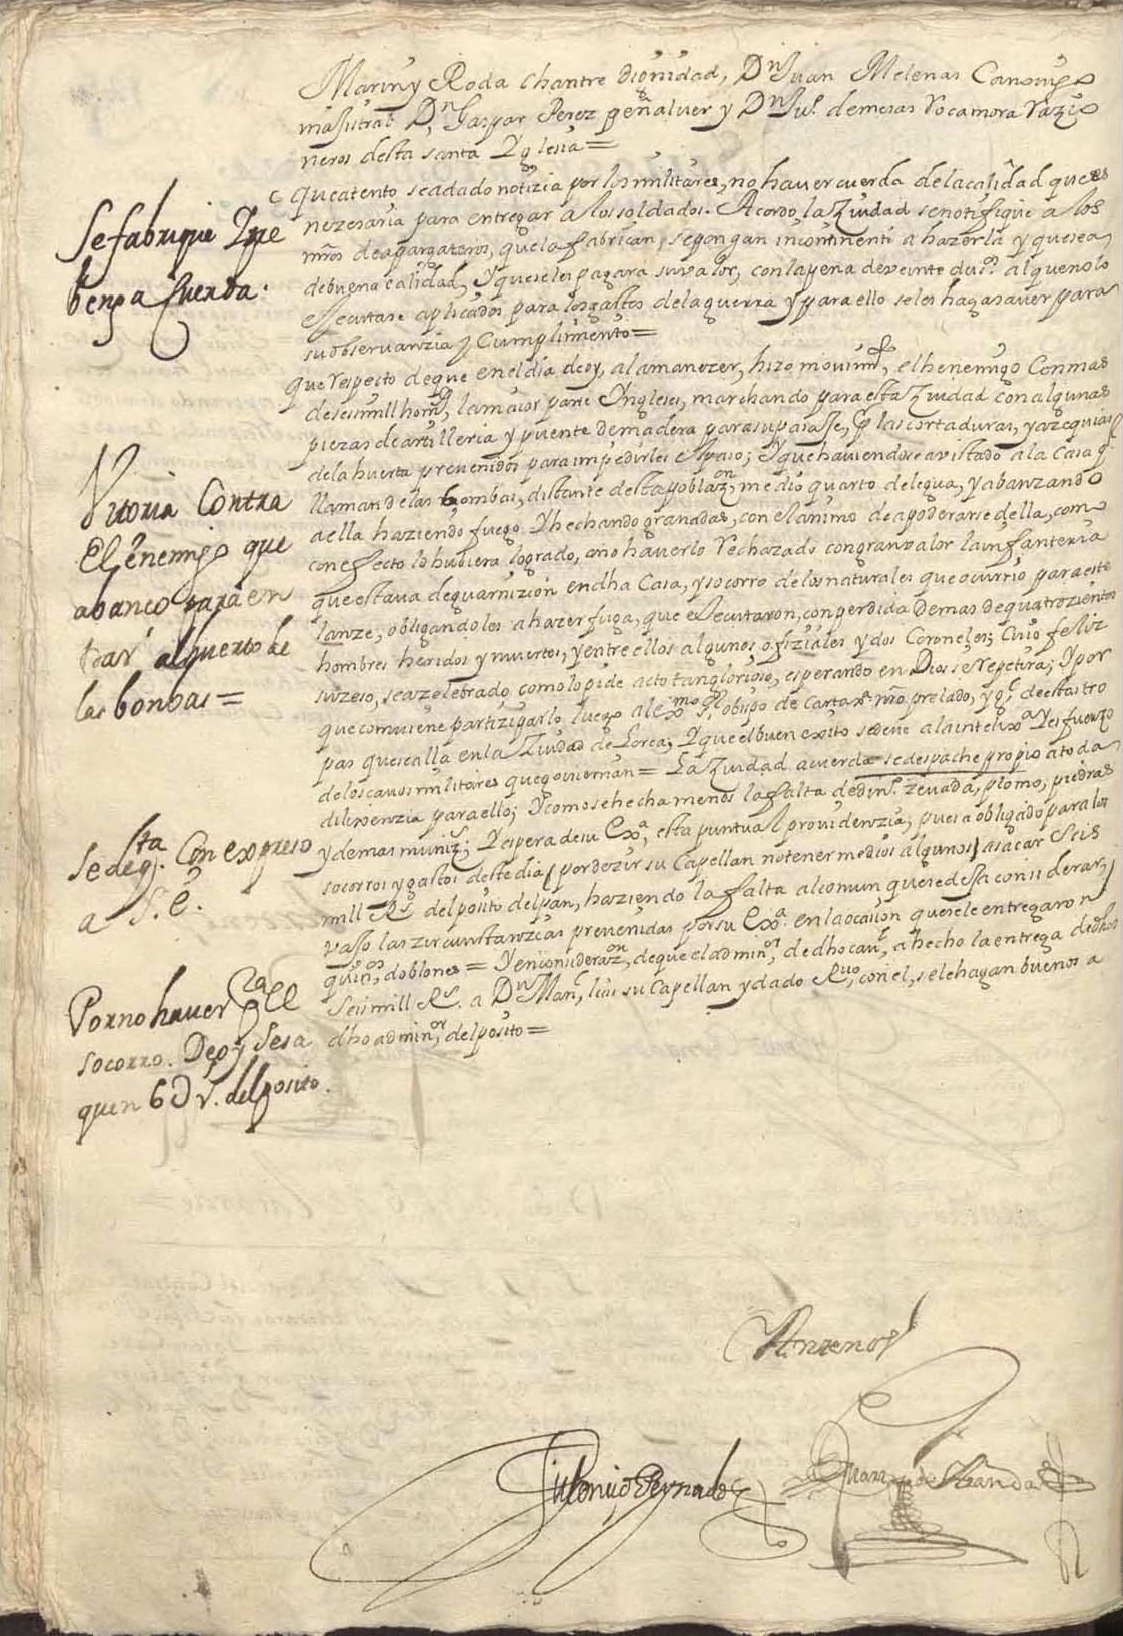 Marin y Roda chantre dignidad, Dn Juan Melenas Canonigo
majistral Dn Gaspar Perez peñaluer y Dn Ju.º de mesas Rocamora Razio
neros desta santa Yglesia =
Se fabrique Y pre
benga Cuerda.
que atento se a dado notizia por los militares, no hauer cuerda de la calidad que es
nezesaria para entregar a los soldados. Acordo la Ziudad se notifique a los
mros de alpargateros, que la fabrican, se pongan incontinenti a hazerla y que sea
de buena calidad, Y que se les pagara su valor, con la pena de veinte dus. al que no lo
essecutare aplicados para los gastos de la guerra y para ello se les haga sauer para
su observanzia y Cumplimiento =
que respecto de que en el dia de oy, al amanezer, hizo movimto, el henemigo Con mas
de seis mill homs, la maior parte Yngleses, marchando para esta Ziudad con algunas
piezas de artilleria y puente de madera para su passaje, Ÿ las cortaduras, y azequias
de la huerta prevenidos para impedirles el paso; Y que hauiendose avistado a la Casa q.
Vitoria Contra
El enemigo que
abanco para en
trar al puerto de
las bonbas =
llaman de las Bombas, distante desta poblazon, medio quarto de legua, y abanzando
a ella haziendo fuego, Y hechando granadas, con el animo de apoderarse della, como
con efecto lo hubiera logrado, a no hauerlo rechazado con gran valor la infanteria
que estaua de guarnizion en dha Casa, y socorro de los naturales que ocurrio para este
lanze, obligandoles a hazer fuga, que essecutaron, con perdida de mas de quatrozientos
hombres heridos y muertos, y entre ellos algunos ofiziales y dos Coroneles; Cuio feliz
suzeso, sea zelebrado como lo pide acto tan glorioso, esperando en Dios se repetira; Y por
que comuiene partizigarlo luego al exmo Sr obispo de cartaxa nro prelado, y gl de estas tro
pas que se alla en la Ziudad de Lorca; Y que el buen exito se deue a la intelixa Y esfuerzo
de los cauos militares que gouiernan = La Ziudad acuerda se despache propio a toda
dilixenzia para ello; Y como se hecha menos la falta de dinº. zeuada, plomo, piedras
Se desp.ta Con expreso
a S. E.
y demas muniz; Y espera de su Exª, esta puntual prouidenzia; pues a obligado para los
socorros y gastos deste dia (por dezir su Capellan no tener medios algunos) a sacar Seis
mill Rs del posito del pan, haziendo la falta al comun que se dessa considerar,
vajo las zircunstanzias prevenidas por su Exª. en la ocasion que se le entregaron
quios, doblones = Y en considerazon, de que el adminor, de dho caul, a hecho la entrega de dhos
Seis mill Rs. a Dn Manl, luis su Capellan y dado Ruo, con el, se le hagan buenos a
dho adminor, del posito =
Por no hauer pa el
socorro. De oy Se sa
quen 6 D r. del posito.
Antonio Bernabe
Juan de Aranda